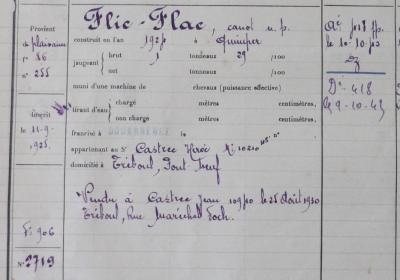 Flic-Flac, canot n.p.
Provient
de plaisance
f° 86
n° 255
construit en l'an 1924 à Quimper
jaugeant
brut 1 tonneaux 29 /100
net tonneaux /100
muni d'une machine de chevaux (puissance effective)
tirant d'eau
chargé mètres centimètres,
non chargé mètres centimètres.
inscrit
le 11-9-
1925.
francisé à DOUARNENEZ
appartenant au Sr Castrec Hervé
domicilié à Tréboul, Pont Neuf
Vendu à Castrec Jean 109 le 25 Août 1930
Tréboul, Rue Maréchal Foch.
F° 906
N° 2719
le 10-10-
D° 418
le 9-10-45